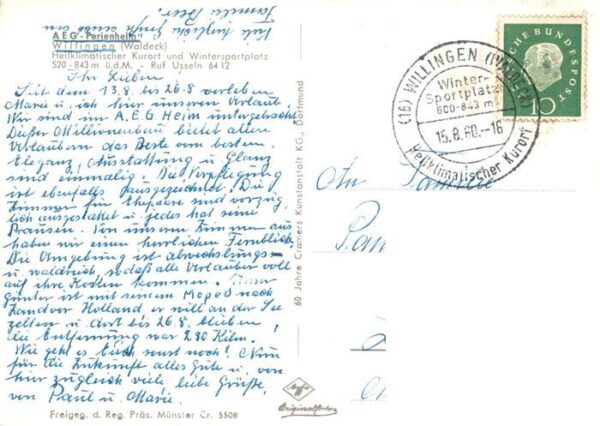 AEG-Ferienheim
Willingen (Waldeck)
Heilklimatischer Kurort und Wintersportplatz
520 - 843 m ü.d.M. - Ruf Usseln 6412
Ihr Lieben
Seit dem 13.8. bis 26.8 verleben
Marie u. ich hier unseren Urlaub.
Wir sind im A.E.G Heim untergebracht
Dieser Millionenbau bietet allen
Urlaubern das Beste vom besten.
Eleganz, Ausstattung u Glanz
sind einmalig. Die Verpflegung
ist ebenfalls ausgezeichnet. Die
Zimmer für Ehepaare sind vorzüg-
lich ausgestattet u. jedes hat seine
Brausen. Von unserem Zimmer aus
haben wir einen herrlichen Fernblick.
Die Umgebung ist abwechslungs-
u waldreich, sodaß alle Urlauber voll
auf ihre Kosten kommen. Unser
Günter ist mit seinem Moped nach
Zandvoor Holland, er will an der See
zelten u. dort bis 26.8 bleiben,
die Entfernung war 280 Kilm.
Wie geht es Euch sonst noch? Nun
für die Zukunft alles Gute u. von
hier zugleich viele liebe Grüße,
von Paul u. Marie.
Freigeg. d. Reg. Präs. Münster Cr. 5508
Familie
60 Jahre Cramers Kunstanstalt KG., Dortmund
(16) WILLINGEN (WALDECK)
Winter-
Sportplatz
600-843 m
15.8.60.-16
Heilklimatischer Kurort
DEUTSCHE BUNDESPOST
10
An Familie
Agfa
Originalfoto